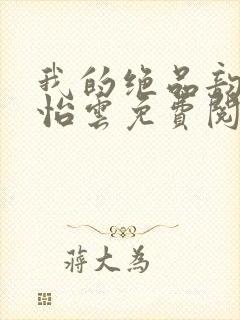 我的绝品
怡雲免費閱
蔣大為